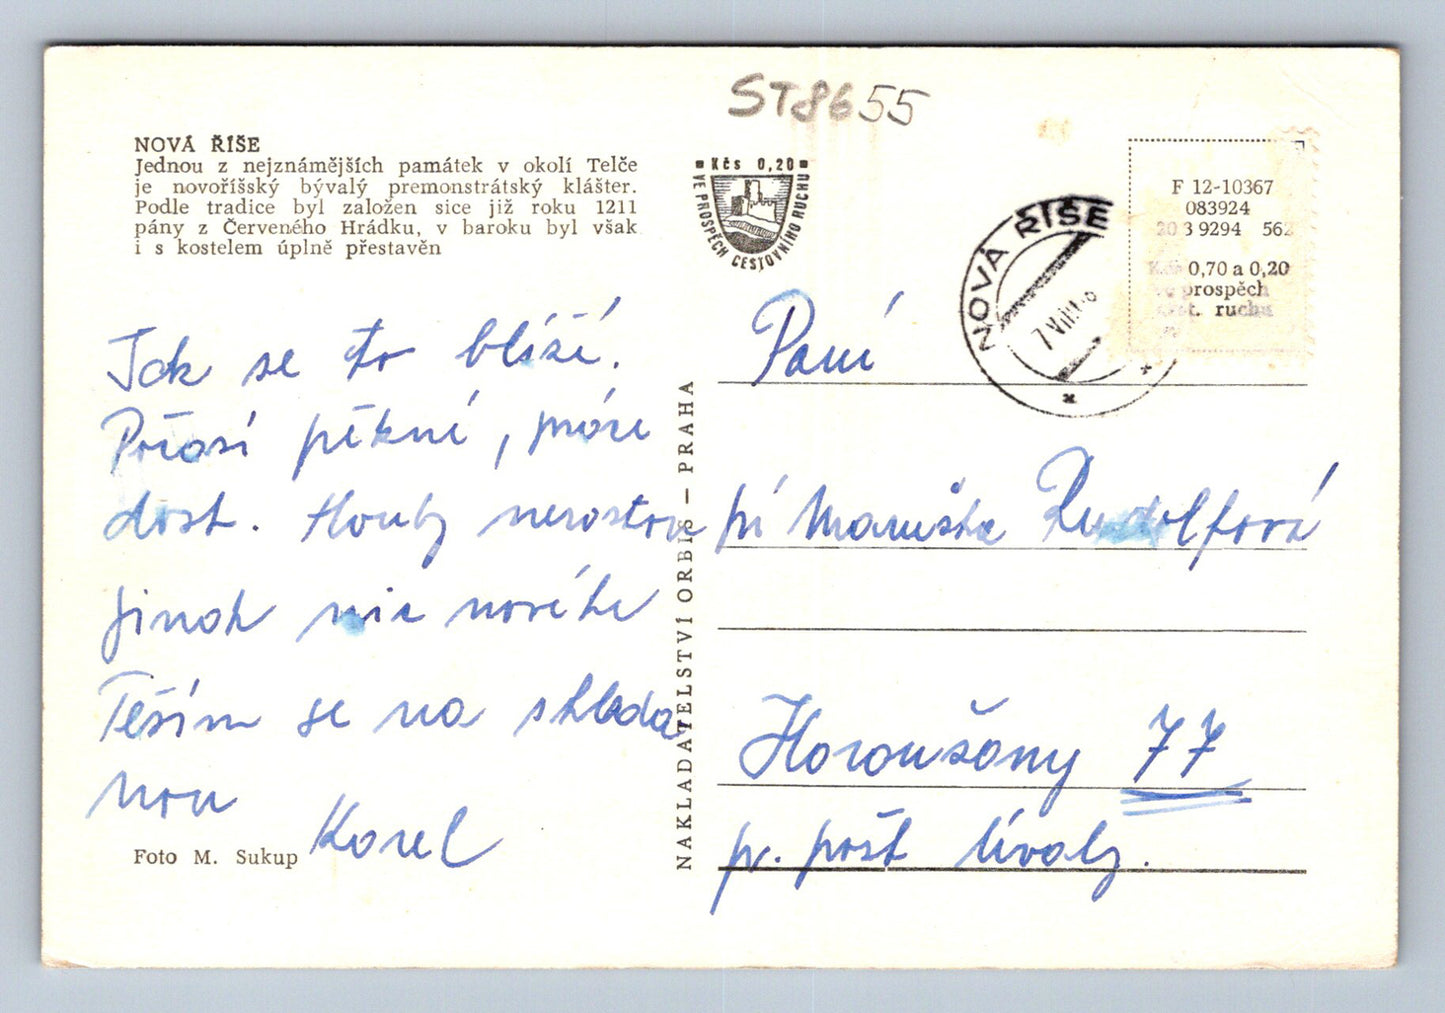 ST8655
NOVÁ ŘÍŠE
Jednou z nejznámějších památek v okolí Telče
je novoříšský bývalý premonstrátský klášter.
Podle tradice byl založen sice již roku 1211
pány z Červeného Hrádku, v baroku byl však
i s kostelem úplně přestavěn
Kčs 0,20
VE PROSPĚCH CESTOVNÍHO RUCHU
NOVÁ ŘÍŠE
7 VIII
F 12-10367
083924
20 3 9294 562
Kčs 0,70 a 0,20
ve prospěch
cest. ruchu
Jak se to blíží.
Počasí pěkné, práce
dost. Houby nerostou
jinak nic nového
Těším se na shleda
nou
Karel
Foto M. Sukup
NAKLADATELSTVÍ ORBIS – PRAHA
Paní
pí Maruška Rudolfová
Horoušany 77
p. pošt Úvaly.